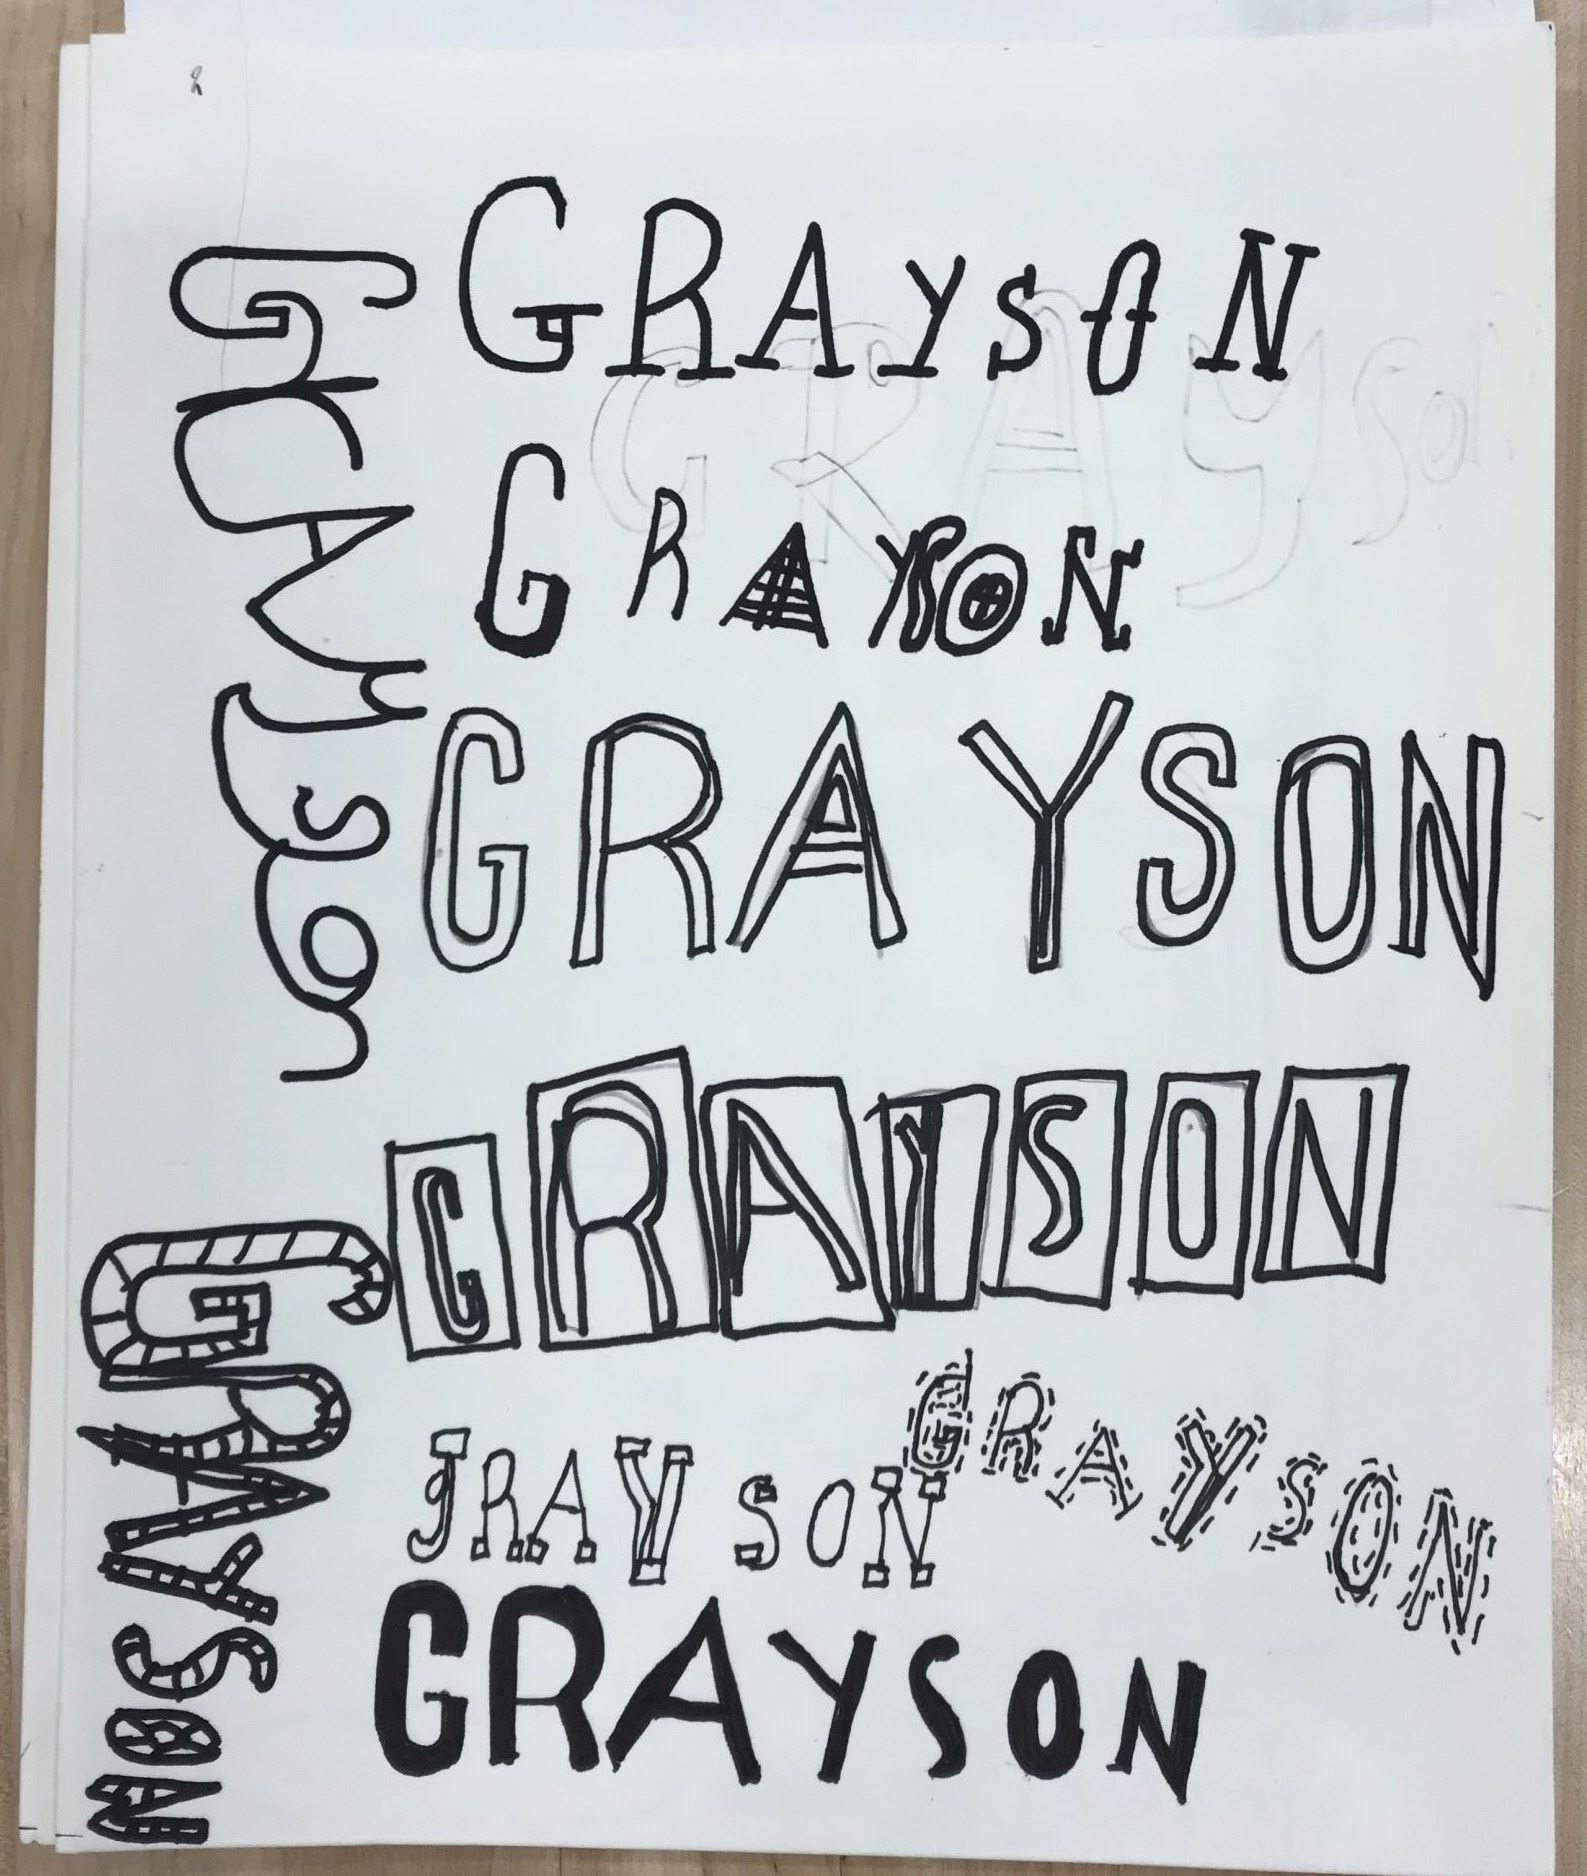 GRAYSON
Grayson
GRAYSON
GRAYSON
GRAYSON
GRAYSON
GRAYSON
GRAYSON
gRAYSON
GRAYSON
GRAYSON